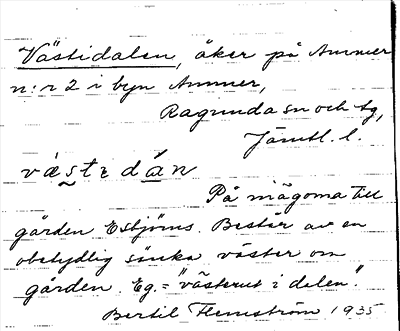 Västidalen, åker på Ammer
n:r 2 i byn Ammer,
Ragunda sn och tg,
Jämtl. l.
västɪdán
På mägorna till
gården Esbjörns. Består av en
obetydlig sänka väster om
gården. Eg. = "västerut i dalen".
Bertil Flemström 1935